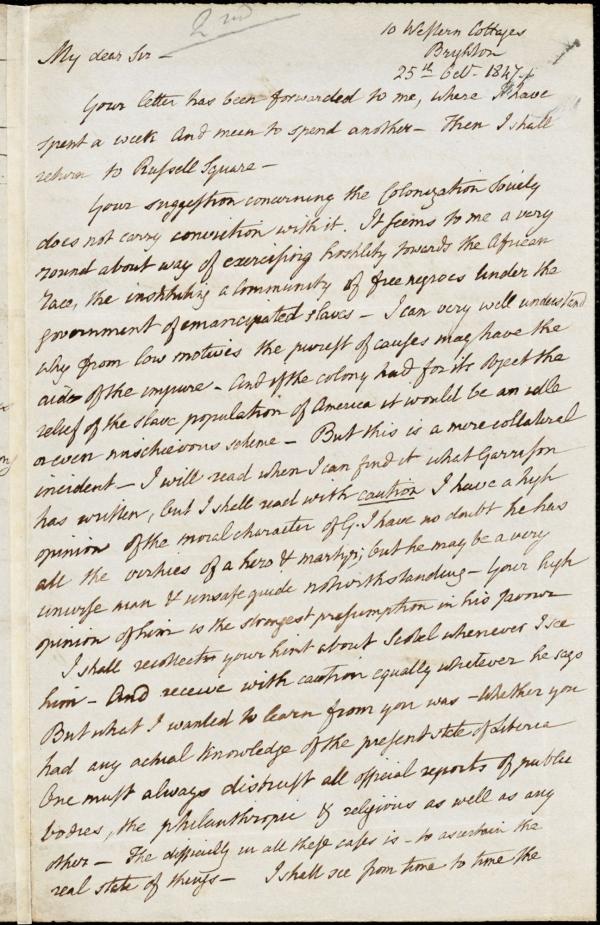 2nd
10 Western Cottages
Brighton
25th Octr. 1847
My dear Sir –
Your letter has been forwarded to me, where I have
spent a week and mean to spend another – Then I shall
return to Russell Square –
Your suggestion concerning the Colonization Society
does not carry conviction with it. It seems to me a very
round about way of exercising hostility towards the African
race, the instituting a community of free negroes under the
government of emancipated slaves – I can very well understand
why from low motives the purest of causes may have the
aid of the impure – And if the colony had for its object the
relief of the slave population of America it would be an idle
or even mischievous scheme – But this is a mere collateral
incident – I will read when I can find it what Garrison
has written, but I shall read with caution I have a high
opinion of the moral character of G. I have no doubt he has
all the virtues of a hero & martyr; but he may be a very
unwise man & unsafe guide notwithstanding – Your high
opinion of him is the strongest presumption in his favour
I shall recollect your hint about whenever I see
him – And receive with caution equally whatever he says
But what I wanted to learn from you was – Whether you
had any actual knowledge of the present state of Liberia
One must always distrust all official reports of public
bodies, the philanthropic & religious as well as any
other – The difficulty in all these cases is – to ascertain the
real state of things – I shall see from time to time the